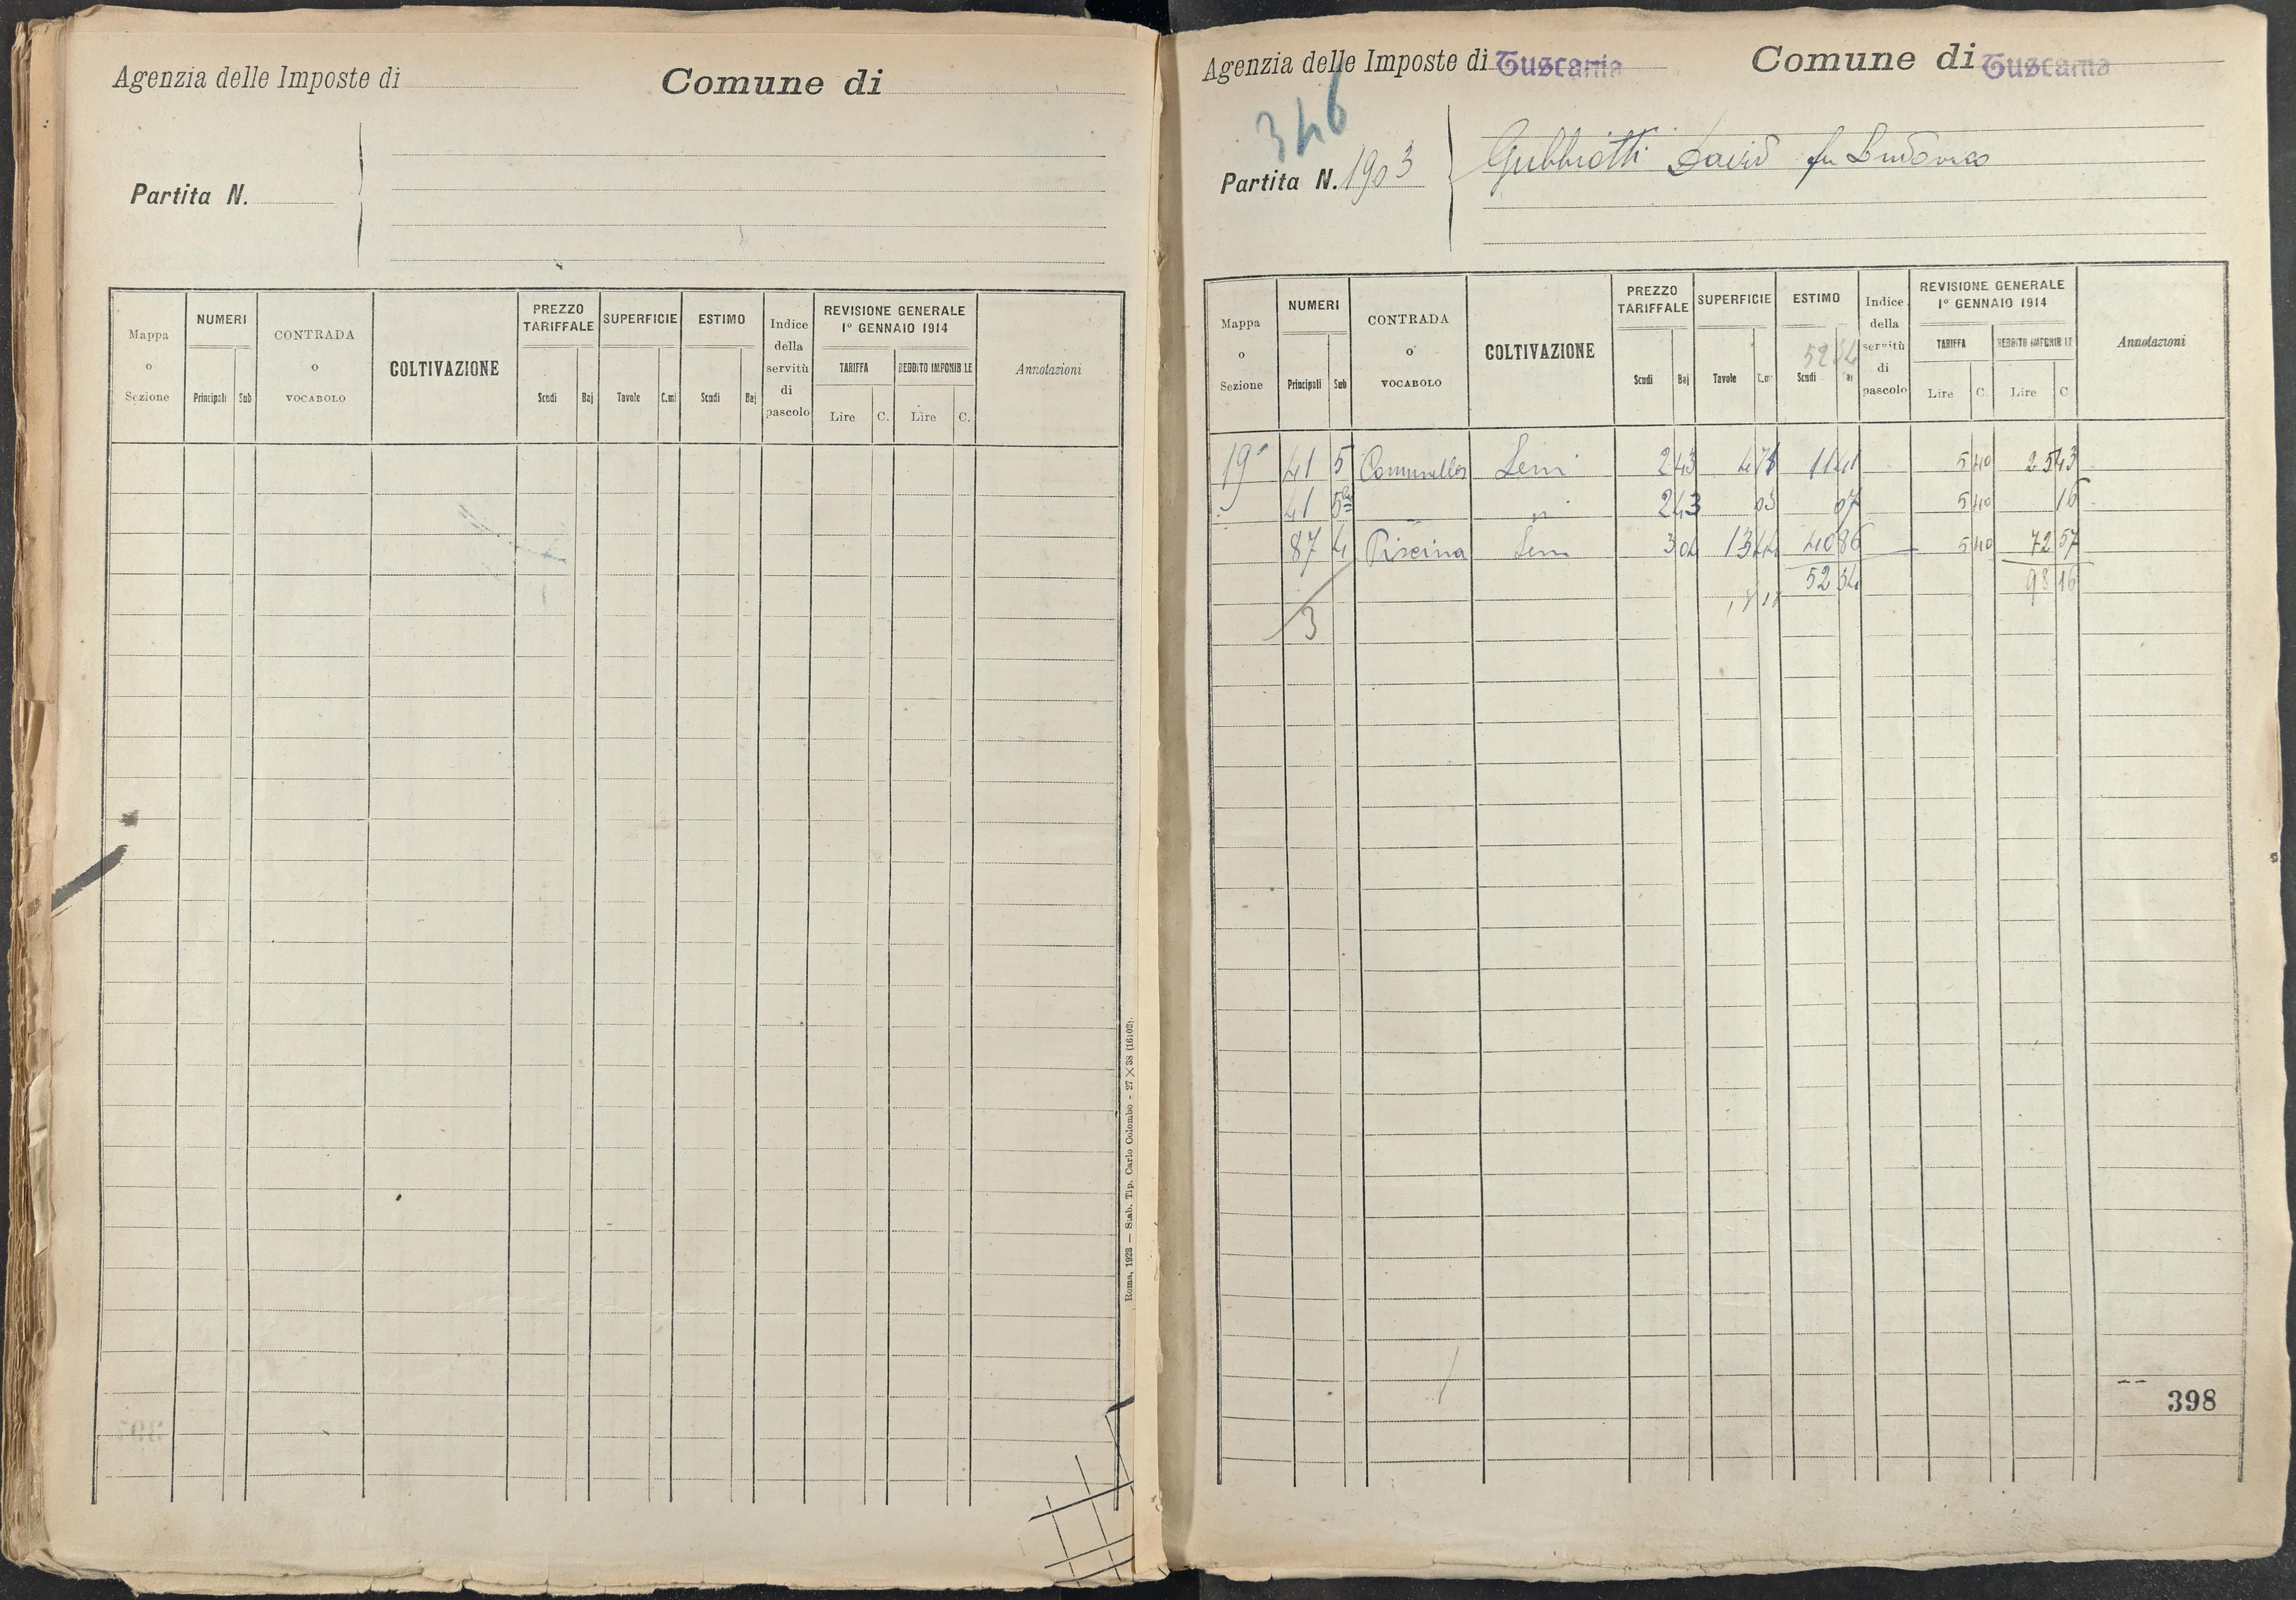 Agenzia delle Imposte di
Comune di
Partita N.
Mappa o Sezione
NUMERI
Principali
Sub
CONTRADA o VOCABOLO
COLTIVAZIONE
PREZZO TARIFFALE
Scudi
Baj
SUPERFICIE
Tavole
C.mi
ESTIMO
Scudi
Baj
Indice della servitù di pascolo
REVISIONE GENERALE 1° GENNAIO 1914
TARIFFA
REDDITO IMPONIBILE
Lire
C.
Lire
C.
Annotazioni
Roma, 1923 — Stab. Tip. Carlo Colombo - 27 × 38 (16103).
Agenzia delle Imposte di Tuscania
Comune di Tuscania
346
Partita N. 1903
Gubbiotti David fu Ludovico
Mappa o Sezione
NUMERI
Principali
Sub
CONTRADA o VOCABOLO
COLTIVAZIONE
PREZZO TARIFFALE
Scudi
Baj
SUPERFICIE
Tavole
C.mi
ESTIMO
52 34
Scudi
Baj
Indice della servitù di pascolo
REVISIONE GENERALE 1° GENNAIO 1914
TARIFFA
REDDITO IMPONIBILE
Lire
C.
Lire
C
Annotazioni
19° 41 5 Comunello Sem 2 43 4 71 11 41 5 40 25 43
41 5 " 2 43 03 07 5 40 16
87 4 Piscina Sem 3 04 13 44 40 86 5 40 72 57
52 34 98 16
3
398